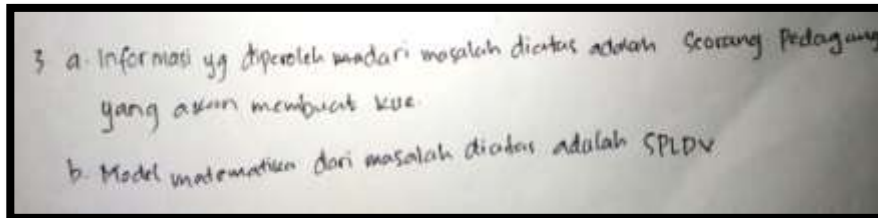 3 a. Informasi yg diperoleh dari masalah diatas adalah Seorang Pedagang
yang akan membuat kue.
b. Model matematika dari masalah diatas adalah SPLDV